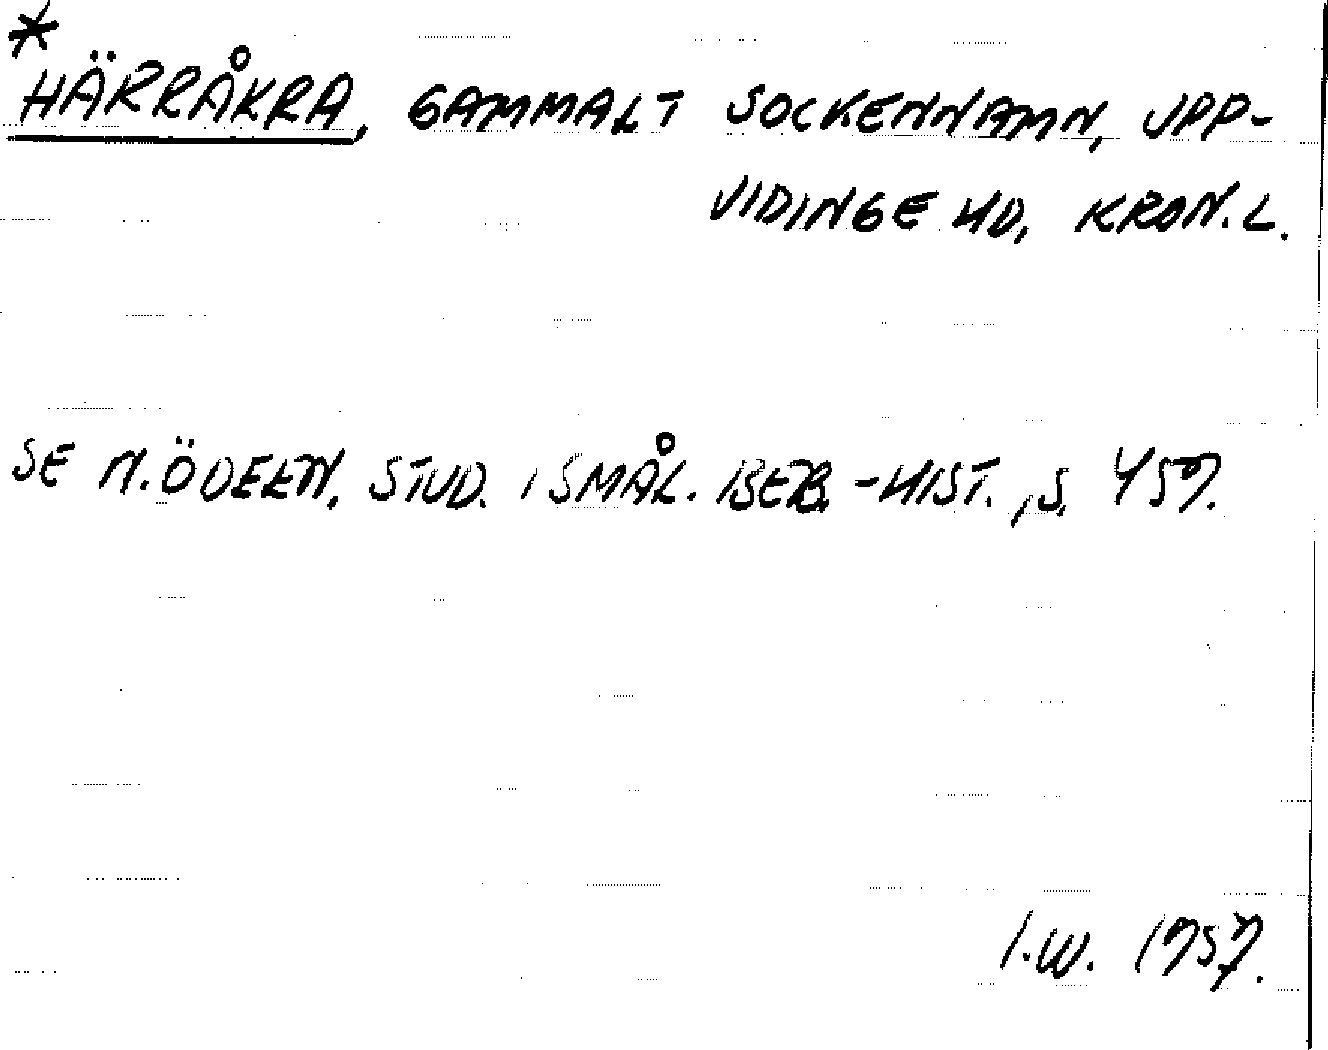 *
HÄRRÅKRA, GAMMALT SOCKENNAMN, UPP-
VIDINGE HD, KRON. L.
SE N. ÖDEEN, STUD. I SMÅL. BEB.-HIST., S. 457.
I.W. 1957.